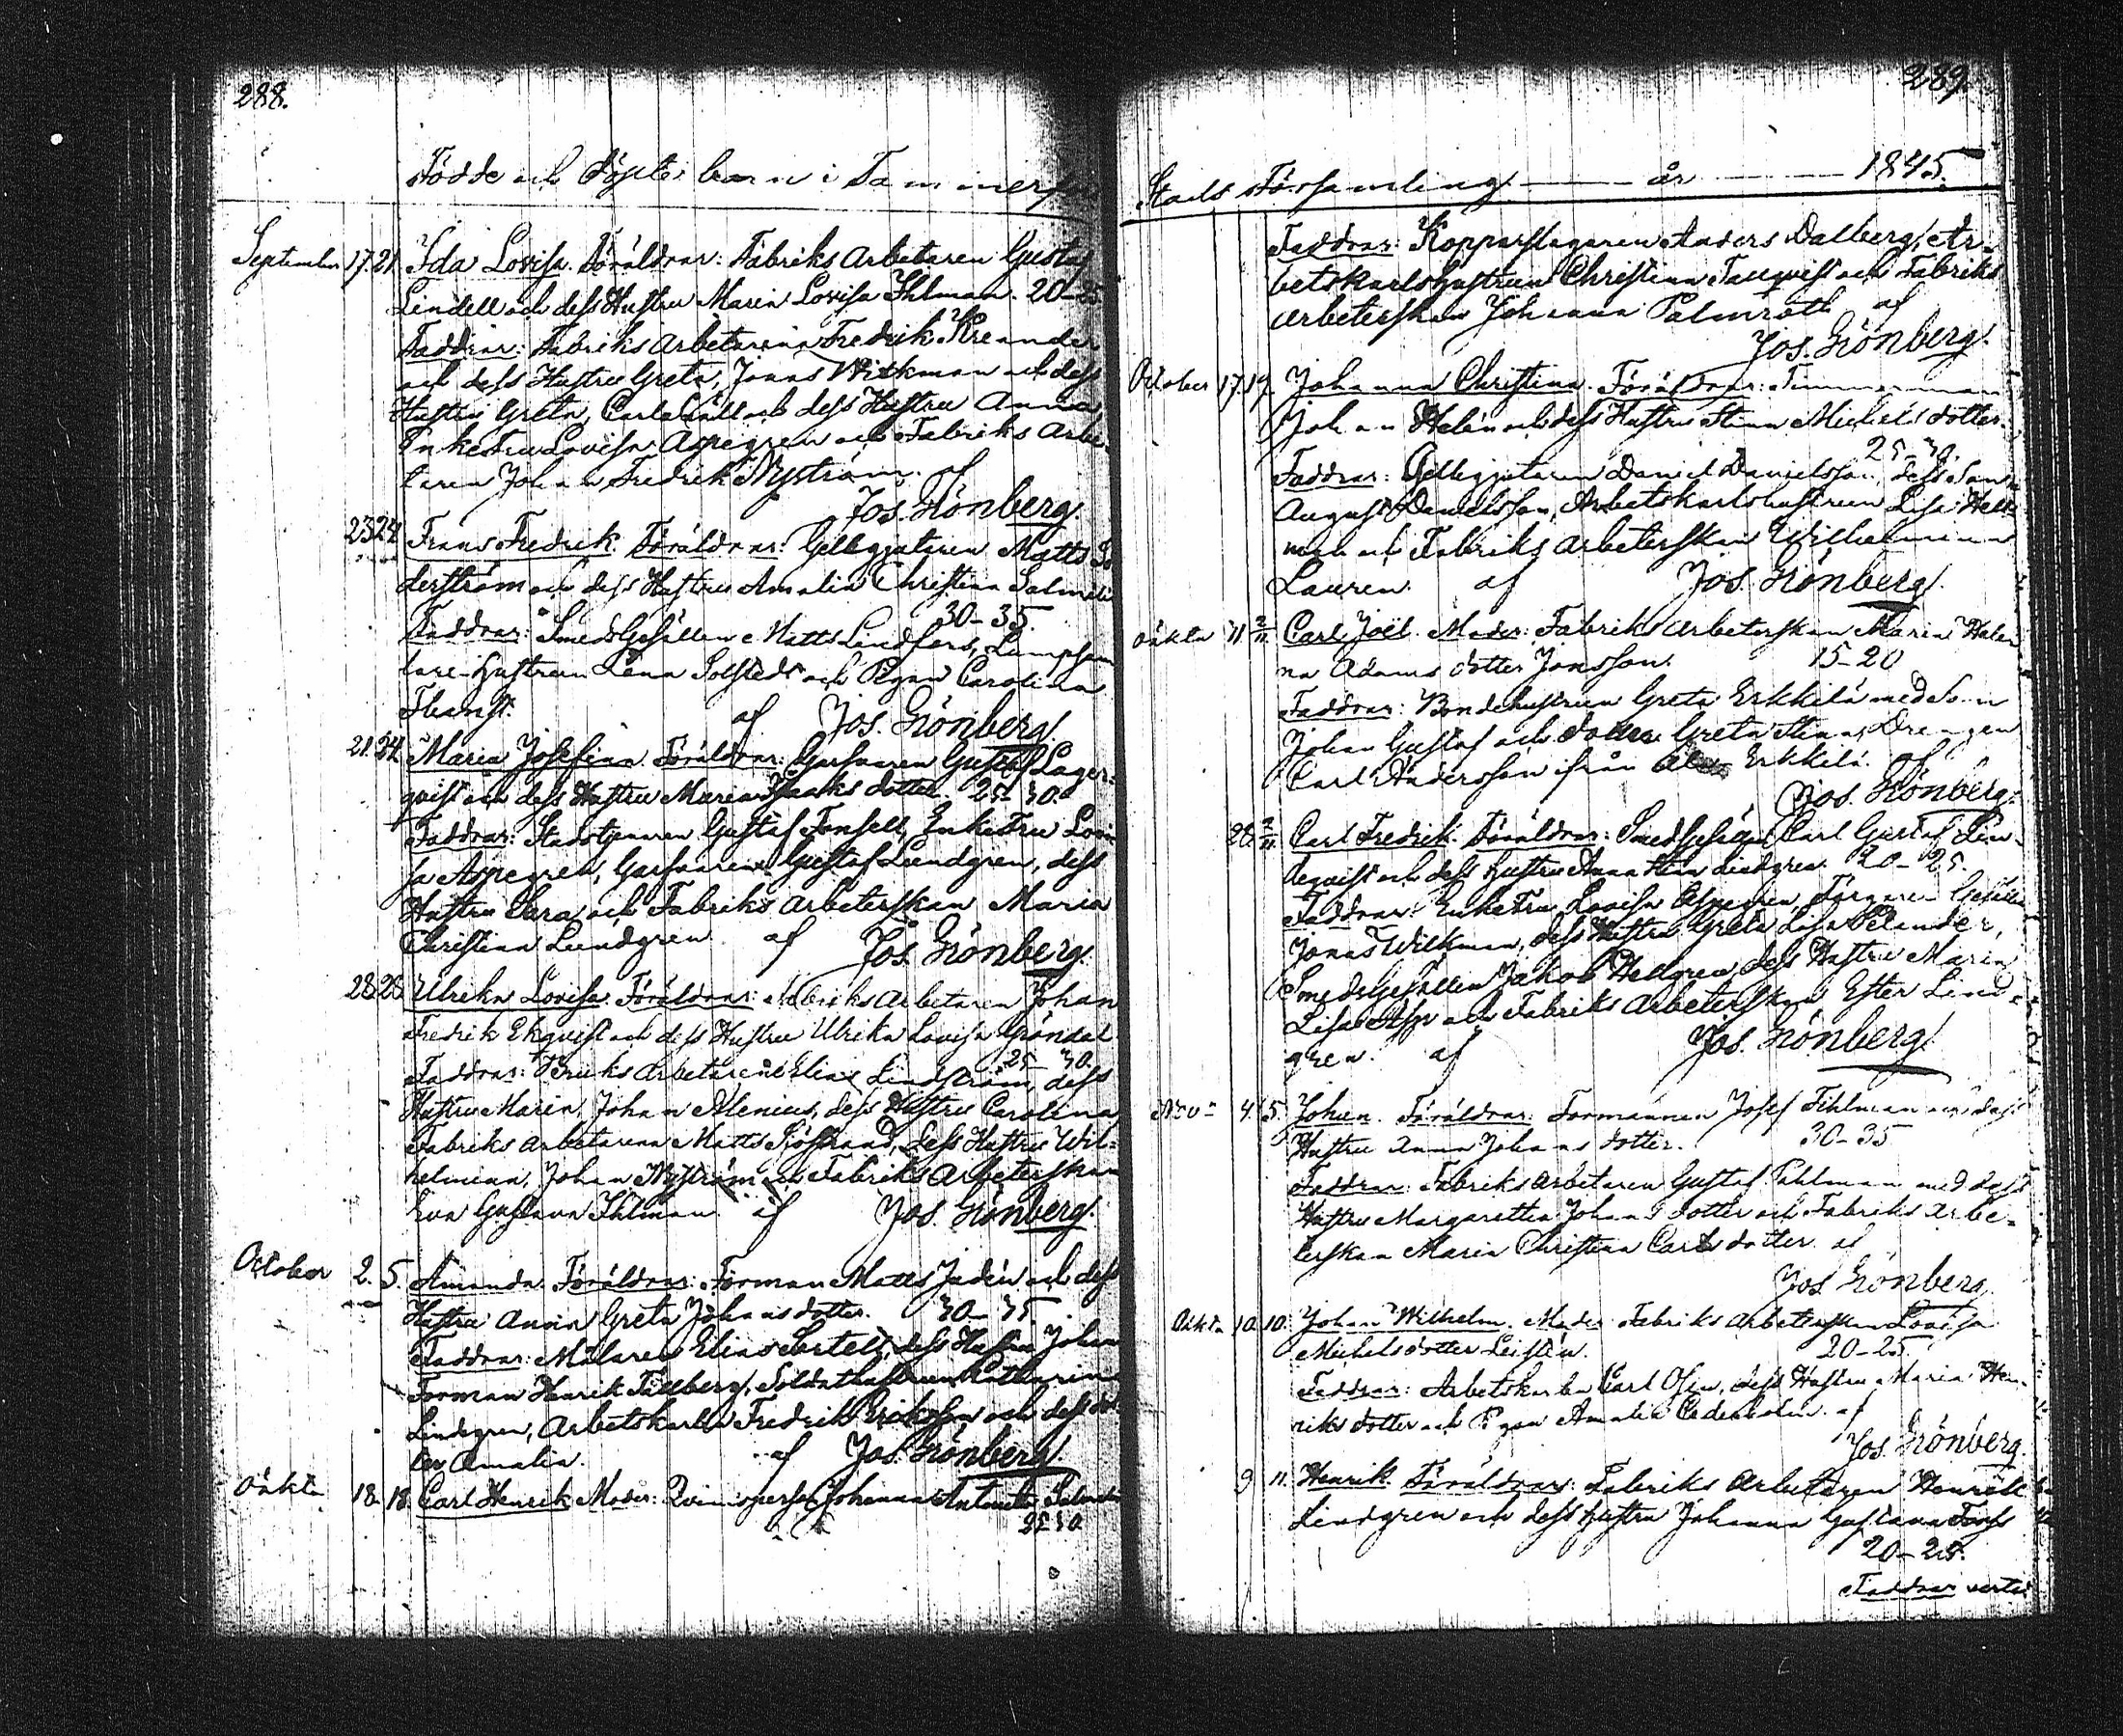 288.
Födde och Döpte barn i Tammerfors
September 17. 21. Ida Lovisa. Föräldrar: Fabriks Arbetaren Gustaf
Lindell och dess Hustru Maria Lovisa Ihlman. 20-25
Faddrar: Fabriks Arbetarena Fredrik Kreander
och dess Hustru Greta, Jonas Wikman och dess
Hustru Greta, Carl och dess Hustru Anna,
Enke Fru Lovisa Aspegren och Fabriks Arbe-
taren Johan Fredrik Nyström. af
Jos. Grönberg.
23 24 Frans Fredrik. Föräldrar: Gelbgjutaren Matts Sö
derström och dess Hustru Amalia Christina Salmelin
30-35.
Faddrar: Smeds Gesällen Matts Lindfors,
Hustrun Lena Solstedt och Pigan Carolina
af Jos. Grönberg.
21. 24 Maria Josefina. Föräldrar: Garfvaren Gustaf Lager-
qvist och dess Hustru Maria Isaaks dotter. 25-30.
Faddrar: Stadstjenaren Gustaf Fonsell, Enke Fru Lovi
sa Aspegren, Garfvaren Gustaf Lundgren, dess
Hustru Sara och Fabriks Arbeterskan Maria
Christina Lundgren. af Jos. Grönberg.
28. 28 Ulrika Lovisa. Föräldrar: Fabriks Arbetaren Johan
Fredrik Ekqvist och dess Hustru Ulrika Lovisa Gröndal
25 30.
Faddrar: Bruks Arbetarene Elias Lindström, dess
Hustru Maria, Johan Alenius, dess Hustru Carolina
Fabriks Arbetarena Matts Sjöstrand, dess Hustru Wil-
helmina, Johan Nyström och Fabriks Arbeterskan
Eva Gustava Ihlman. af Jos. Grönberg.
October 2. 5. Amanda. Föräldrar: Forman Matts Judén och dess
Hustru Anna Greta Johansdotter. 30-35.
Faddrar: Målaren Elias Sertell, dess Hustru Johan
Forman Henrik Tällberg, Soldathustrun Katharina
Lindgren, Arbetskarlen Fredrik Eriksson och dess dot
ter Amalia. af Jos. Grönberg.
18. 18. Carl Henrik Moder: Qvinnspersonen Johanna Antoinetta
25 30
289.
Stads Församling år 1845.
Faddrar: Kopparslagaren Anders Dalberg, Ar-
betskarls Hustrun Christina Tanqvist och Fabriks
Arbeterskan Johanna Palmroth af
Jos. Grönberg.
October 17. 19. Johanna Christina. Föräldrar: Timmerman
Johan Helén och dess Hustru Stina Michels dotter.
25-30.
Faddrar: Gelbgjutaren Daniel Danielsson, dess Son
August Danielsson, Arbetskarlshustrun Lisa Hell
man och Fabriks Arbeterskan Wilhelmina
Lauren. af Jos. Grönberg.
31. 2/11. Carl Joël. Moder: Fabriks Arbeterskan Maria Hele
na Adams dotter Jonsson. 15-20
Faddrar: Bondehustrun Greta Erkkilä med son
Johan Gustaf och dotter Greta Stina, Drengen
Carl Andersson ifrån Erkkilä. af
Jos. Grönberg.
28. 2/11. Carl Fredrik. Föräldrar: Smeds Gesällen Carl Gustaf Lin-
deqvist och dess Hustru Anna Stina Lindgren. 20-25.
Faddrar: Enke Fru Lovisa Aspegren, Färgare Gesällen
Jonas Wikman, dess Hustru Greta Lisa Pelander,
Smeds Gesällen Jakob Hellgren, dess Hustru Maria
Lisa och Fabriks Arbeterskan Ester Lind-
gren. af Jos. Grönberg.
Nov: 4. 5. Johan. Föräldrar: Formannen Josef Fihlman och dess
Hustru Anna Johans dotter. 30-35
Faddrar: Fabriks Arbetaren Gustaf Pihlman med dess
Hustru Margaretha Johans dotter och Fabriks Arbe-
terskan Maria Christina Carls dotter. af
Jos. Grönberg.
10. 10. Johan Wilhelm. Moder: Fabriks Arbeterskan Lovisa
Michels dotter Leistén. 20-25.
Faddrar: Arbetskarlen Carl Ofin, dess Hustru Maria Hen-
riks dotter och Pigan Amalia Cederholm. af
Jos. Grönberg.
9. 11. Henrik. Föräldrar: Fabriks Arbetaren Henrik
Lindgren och dess Hustru Johanna Gustava
20-25.
Faddrar verte